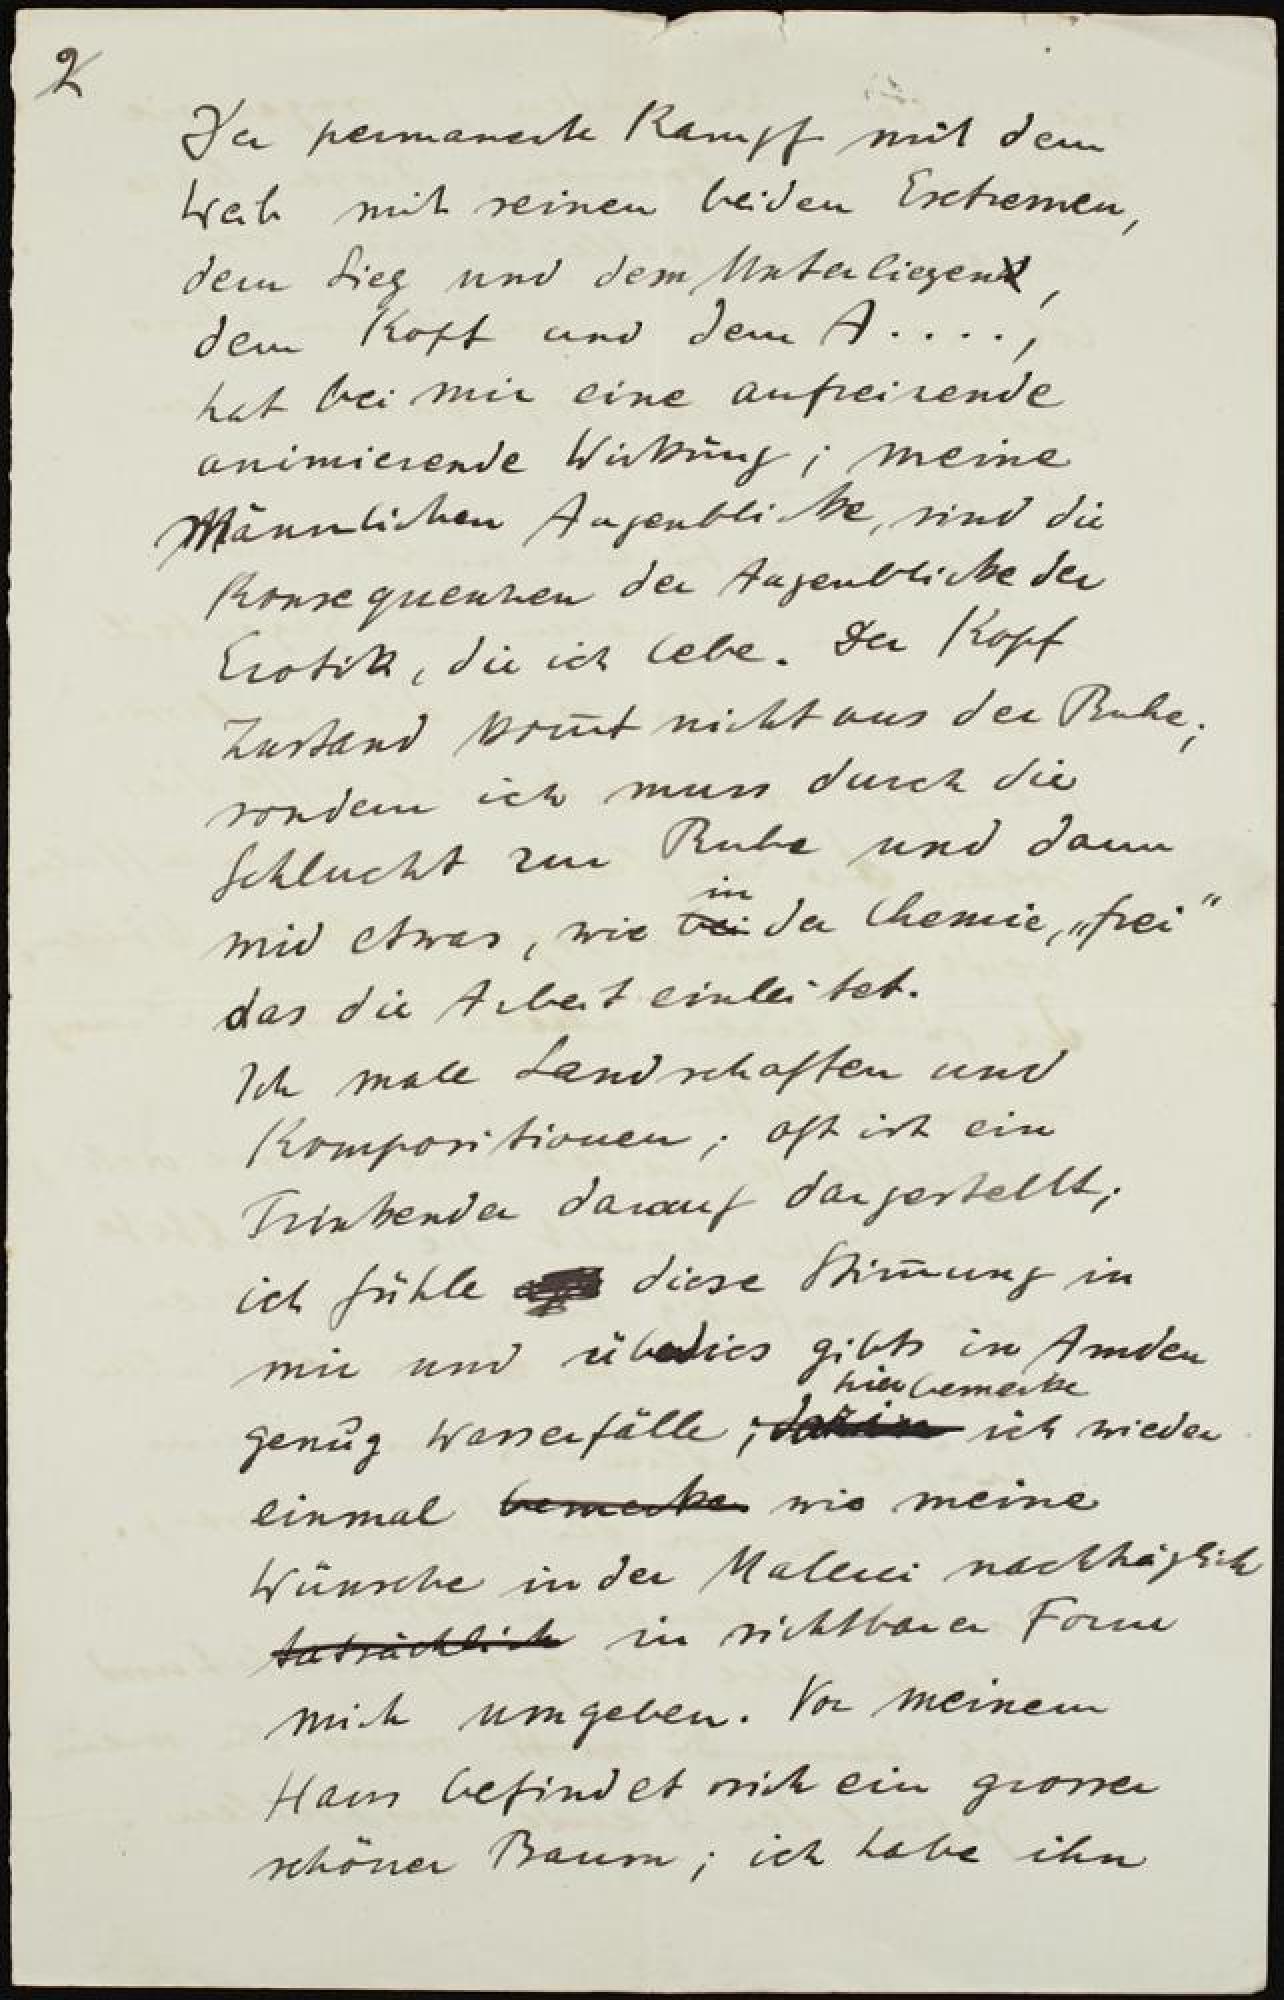 2
Der permanente Kampf mit dem
Weib mit seinen beiden Extremen,
dem Sieg und dem Unterliegen,
dem Kopf und dem A....,
hat bei mir eine aufreizende
animierende Wirkung; meine
Männlichen Augenblicke, sind die
Konsequenzen der Augenblicke der
Erotik, die ich lebe. Der Kopf
Zustand kom̄t nicht aus der Ruhe,
sondern ich muss durch die
Schlucht zur Ruhe und dann
wird etwas, wie bei in der Chemie, „frei“
das die Arbeit einleitet.
Ich male Landschaften und
Kompositionen; oft ist ein
Trinkender darauf dargestellt;
ich fühle diese Stim̄ung in
mir und überdies gibts in Amden
hier bemerke
genug Wasserfälle; ich wieder
einmal bemerke wie meine
Wünsche in der Malerei nachträglich
tatsächlich in sichtbarer Form
mich umgeben. Vor meinem
Haus befindet sich ein grosser
schöner Baum; ich habe ihn